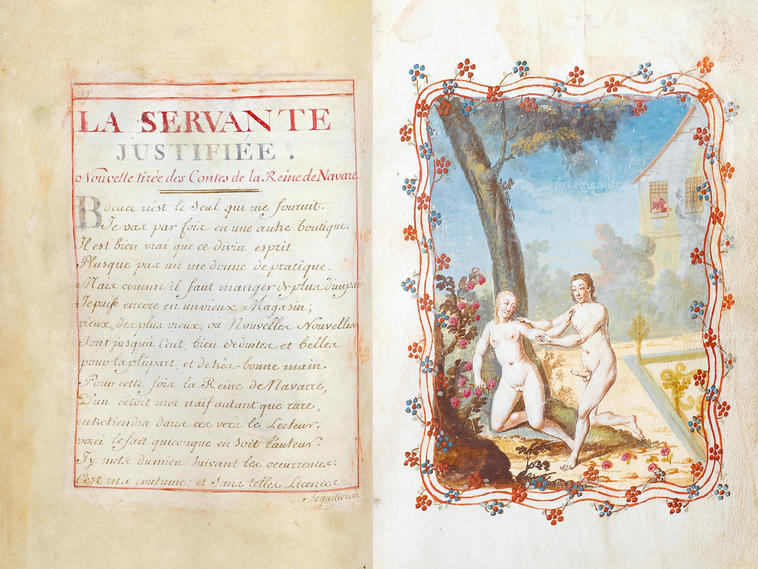 LA SERVANTE
JUSTIFIÉE.
Nouvelle tirée des Contes de la Reine de Navare
Bocace n'est le Seul qui me fournit.
Je vas par fois en une autre boutique.
Il est bien vrai que ce divin esprit
Plusque pas un me donne de pratique.
Mais comme il faut manger de plus d'un pain
Je puise encore en un vieux Magasin;
vieux, des plus vieux, où Nouvelles Nouvelles
Sont jusqu'à Cent, bien déduites et belles
pour la plûpart, et de très bonne main.
Pour cette fois la Reine de Navarre,
D'un c'étoit moi naif autant que rare,
entretiendra dans ces vers le Lecteur.
voici le fait quiconque en Soit l'auteur.
J'y mets du mien Suivant les occurrences:
C'est ma coutume; et Sans telles Licences